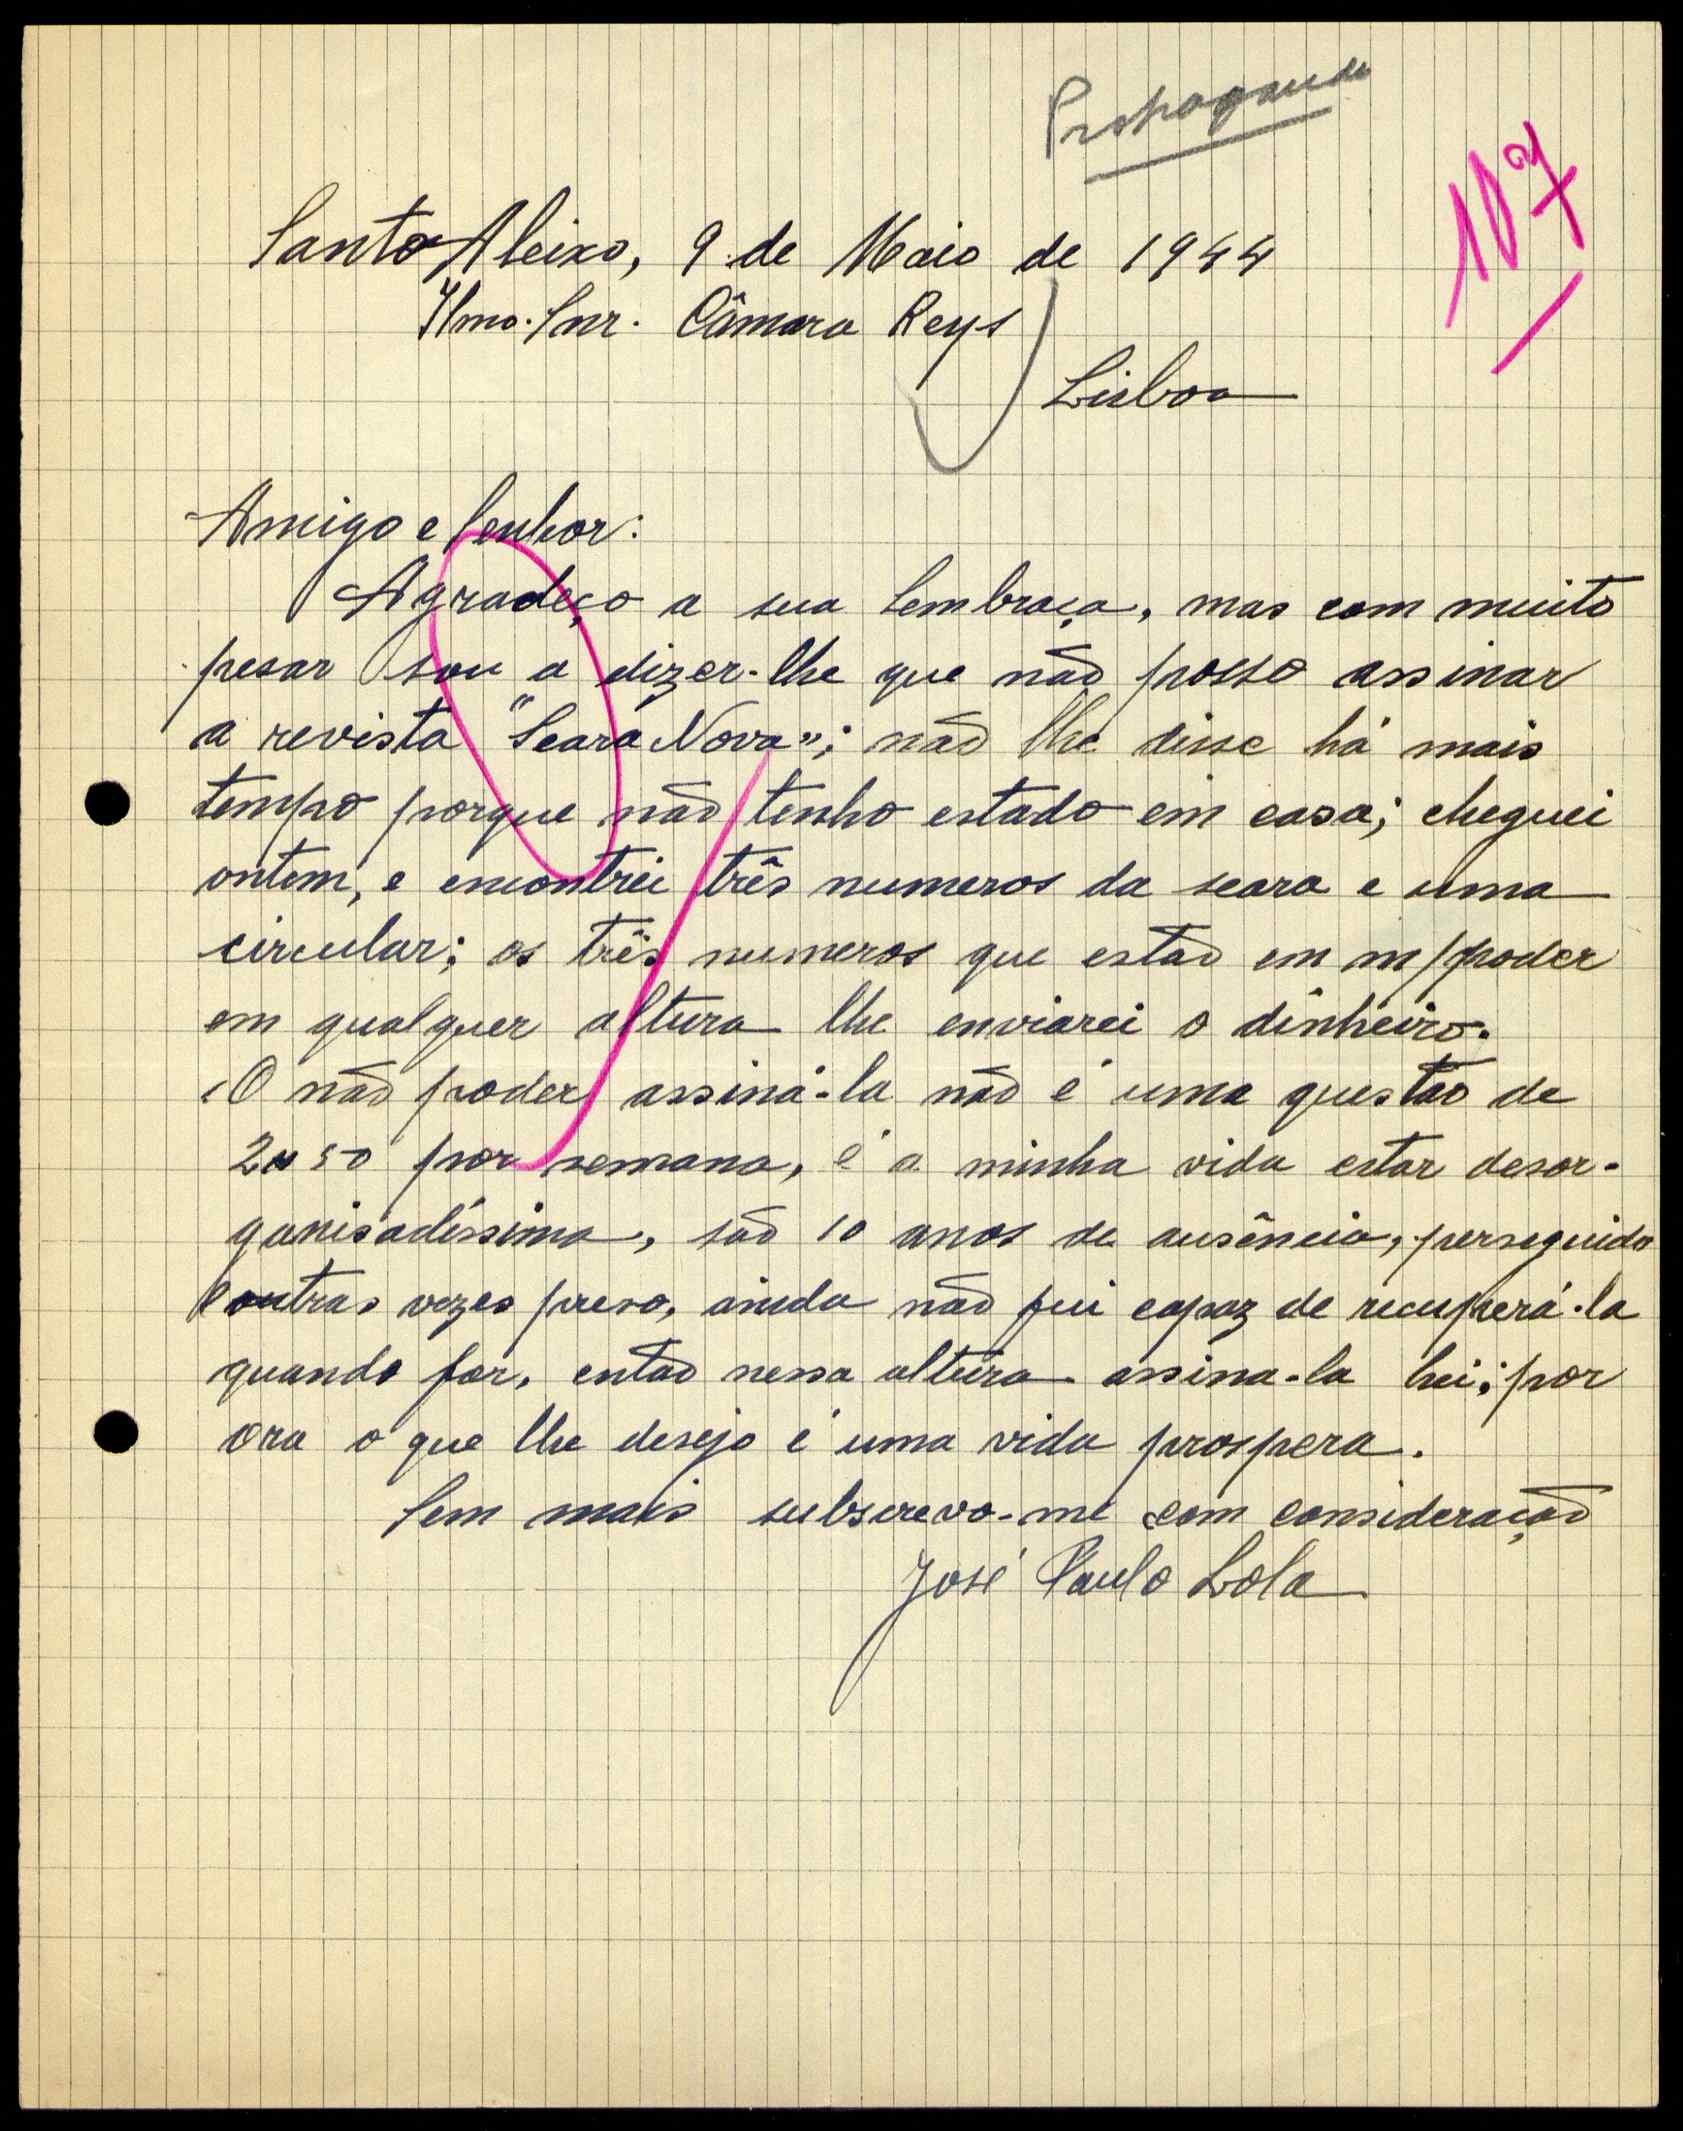 Propaganda
107
Santo Aleixo, 9 de Maio de 1944
Ilmo. Snr. Câmara Reys
Lisboa
Amigo e Senhor:
Agradeço a sua lembraça, mas com muito
pesar sou a dizer-lhe que não posso assinar
a revista "Seara Nova"; não lhe disse há mais
tempo porque não tenho estado em casa; cheguei
ontem, e encontrei três numeros da seara e uma
circular; os três numeros que estão em m/poder
em qualquer altura lhe enviarei o dinheiro.
O não poder assiná-la não é uma questão de
2$50 por semana, é a minha vida estar desor-
ganisadíssima, são 10 anos de ausência, perseguido
outras vezes preso, ainda não fui capaz de recuperá-la
quando for, então nessa altura assina-la hei; por
ora o que lhe desejo é uma vida prospera.
Sem mais subscrevo-me com consideração
José Paulo Lola